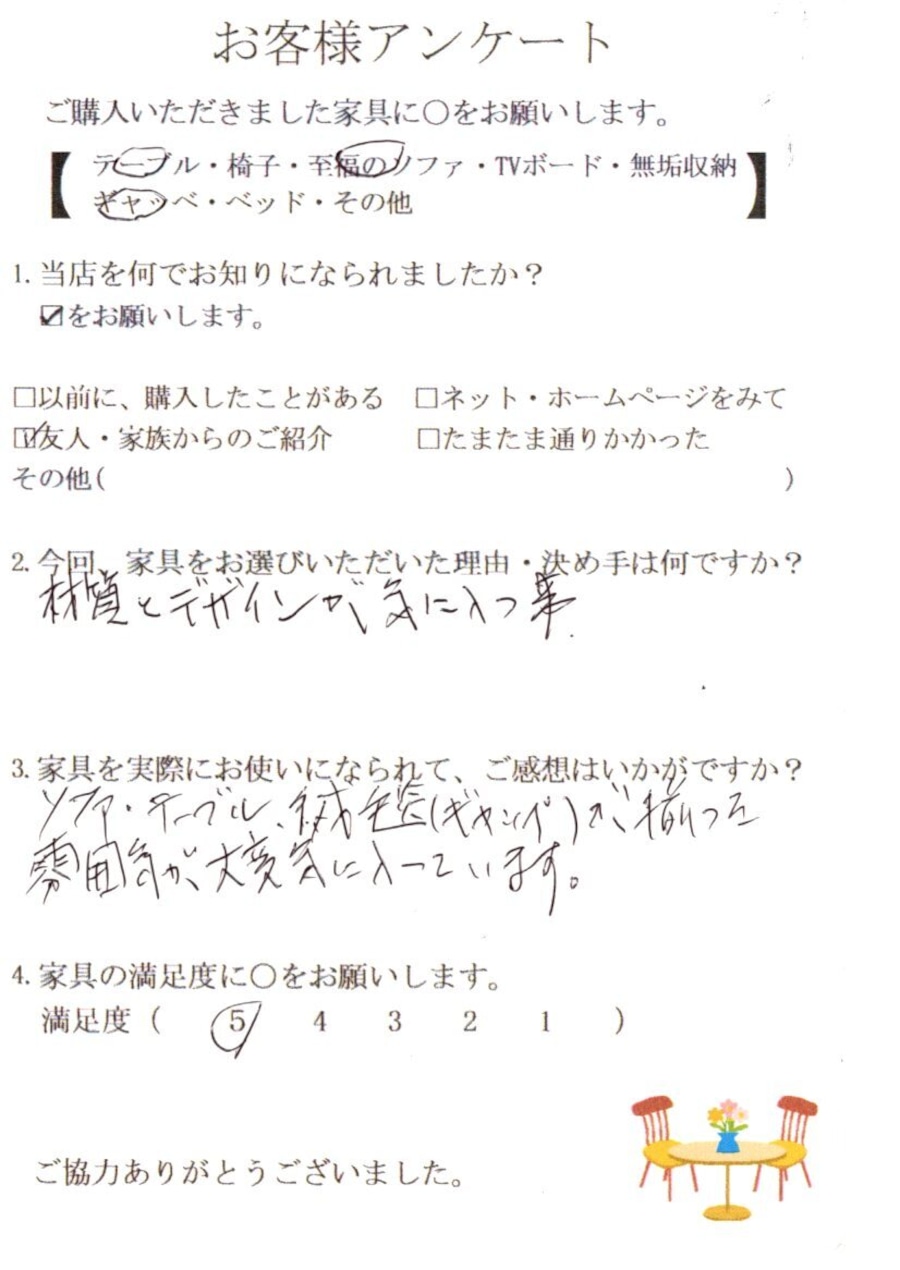 お客様アンケート
ご購入いただきました家具に○をお願いします。
【 テーブル・椅子・至福のソファ・TVボード・無垢収納
ギャッベ・ベッド・その他 】
1. 当店を何でお知りになられましたか？
☑をお願いします。
□以前に、購入したことがある □ネット・ホームページをみて
☑友人・家族からのご紹介 □たまたま通りかかった
その他( )
2. 今回、家具をお選びいただいた理由・決め手は何ですか？
材質とデザインが、気に入つ事.
3. 家具を実際にお使いになられて、ご感想はいかがですか？
ソファ・テーブル、絨毯(ギャンベ)が、揃った
雰囲気が、大変気に入っています。
4. 家具の満足度に○をお願いします。
満足度（ 5 4 3 2 1 ）
ご協力ありがとうございました。